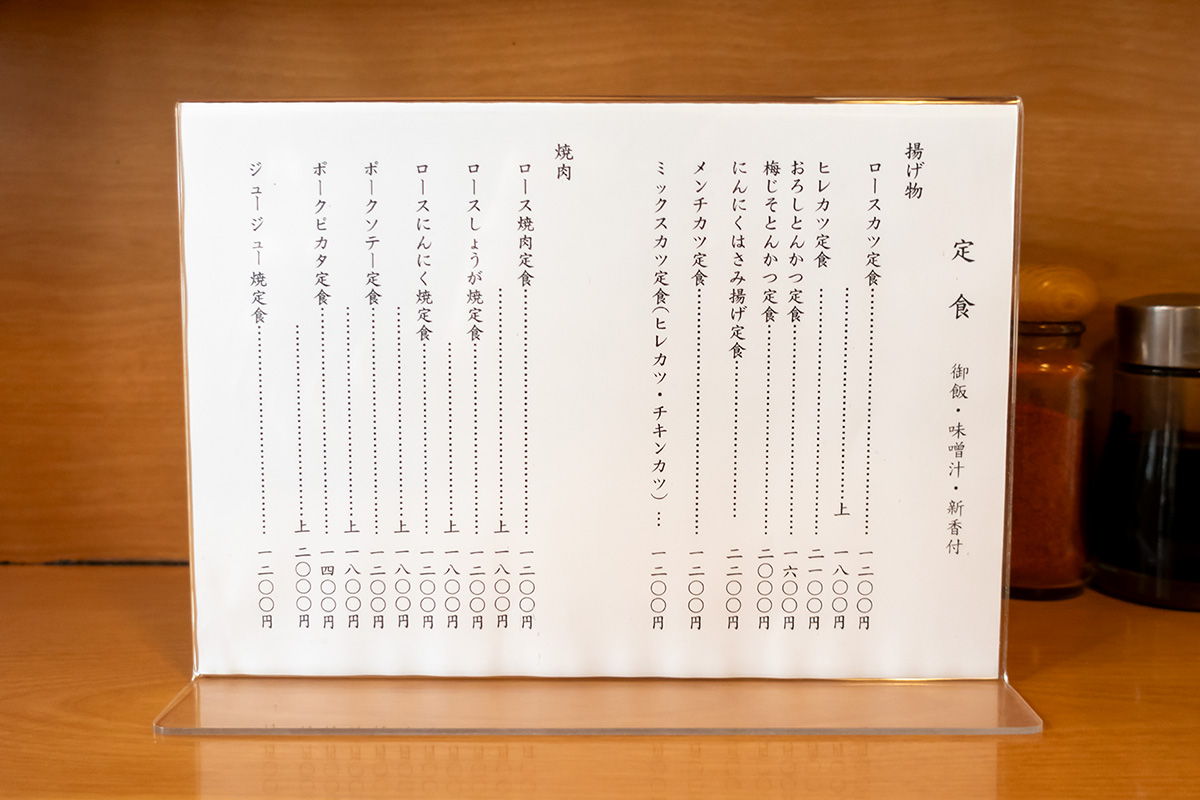 定食 御飯・味噌汁・新香付
揚げ物
ロースカツ定食……一二〇〇円
……上 一八〇〇円
ヒレカツ定食……二一〇〇円
おろしとんかつ定食……一六〇〇円
梅じそとんかつ定食……二〇〇〇円
にんにくはさみ揚げ定食……二二〇〇円
メンチカツ定食……一二〇〇円
ミックスカツ定食(ヒレカツ・チキンカツ)…一二〇〇円
焼肉
ロース焼肉定食……一二〇〇円
……上 一八〇〇円
ロースしょうが焼定食……一二〇〇円
……上 一八〇〇円
ロースにんにく焼定食……一二〇〇円
……上 一八〇〇円
ポークソテー定食……一二〇〇円
……上 一八〇〇円
ポークピカタ定食……一四〇〇円
……上 二〇〇〇円
ジュージュー焼定食……一二〇〇円